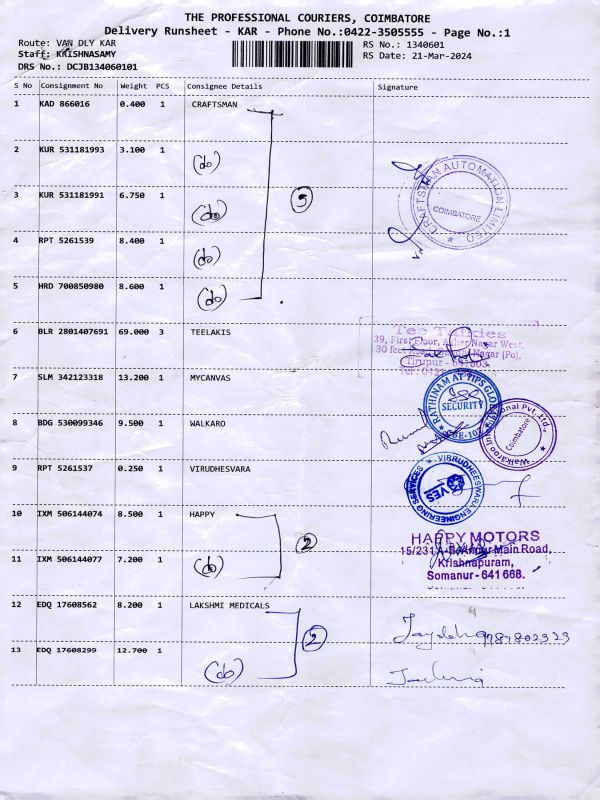 THE PROFESSIONAL COURIERS, COIMBATORE
Delivery Runsheet - KAR - Phone No.:0422-3505555 - Page No.:1
Route: VAN DLY KAR RS No.: 1340601
Staff: KRISHNASAMY RS Date: 21-Mar-2024
DRS No.: DCJB134060101
S No Consignment No Weight PCS Consignee Details Signature
1 KAD 866016 0.400 1 CRAFTSMAN
2 KUR 531181993 3.100 1 (do)
CRAFTSMAN AUTOMATION LIMITED
COIMBATORE
3 KUR 531181991 6.750 1 (do) 5
4 RPT 5261539 8.400 1 (do)
5 HRD 700850980 8.600 1 (do)
6 BLR 2801407691 69.000 3 TEELAKIS
39, First Floor, Nagar West,
30 feet Road, Nagar (Po),
Tirupur -
7 SLM 342123318 13.200 1 MYCANVAS
RATHINAM AT TIPS GLOBAL
SECURITY
8 BDG 530099346 9.500 1 WALKARO
Walkaroo International Pvt. Ltd.,
Coimbatore
9 RPT 5261537 0.250 1 VIRUDHESVARA
VIRRUDHEESWARA ENGINEERING SERVICES
VES
10 IXM 506144074 8.500 1 HAPPY 2
HAPPY MOTORS
15/231 Main Road,
11 IXM 506144077 7.200 1 (do)
Krishnapuram,
Somanur - 641 668.
12 EDQ 17608562 8.200 1 LAKSHMI MEDICALS 2
13 EDQ 17608299 12.700 1 (do)